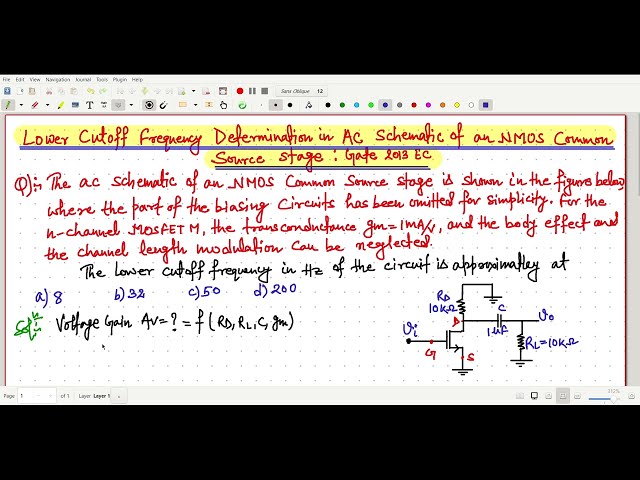 File Edit View Journal Tools Plugin Help
Sans Oblique 12
Lower Cutoff Frequency Determination in AC Schematic of an NMOS Common
Source stage : Gate 2013 EC
Q):- The ac schematic of an NMOS Common Source stage is shown in the figure below,
where the part of the biasing Circuits has been omitted for simplicity. For the
n-channel MOSFET M, the transconductance gm = 1mA/V, and the body effect and
the channel length modulation can be neglected.
The Lower cutoff frequency in Hz of the circuit is approximatley at
a) 8 b) 32 c) 50 d) 200
Solⁿ:- Voltage Gain Av = ? = f (RD, RL, C, gm)
RD
10KΩ
D
C
1μF
Vo
Vi
G
S
RL = 10KΩ
312%
Page 1 of 1 Layer Layer 1